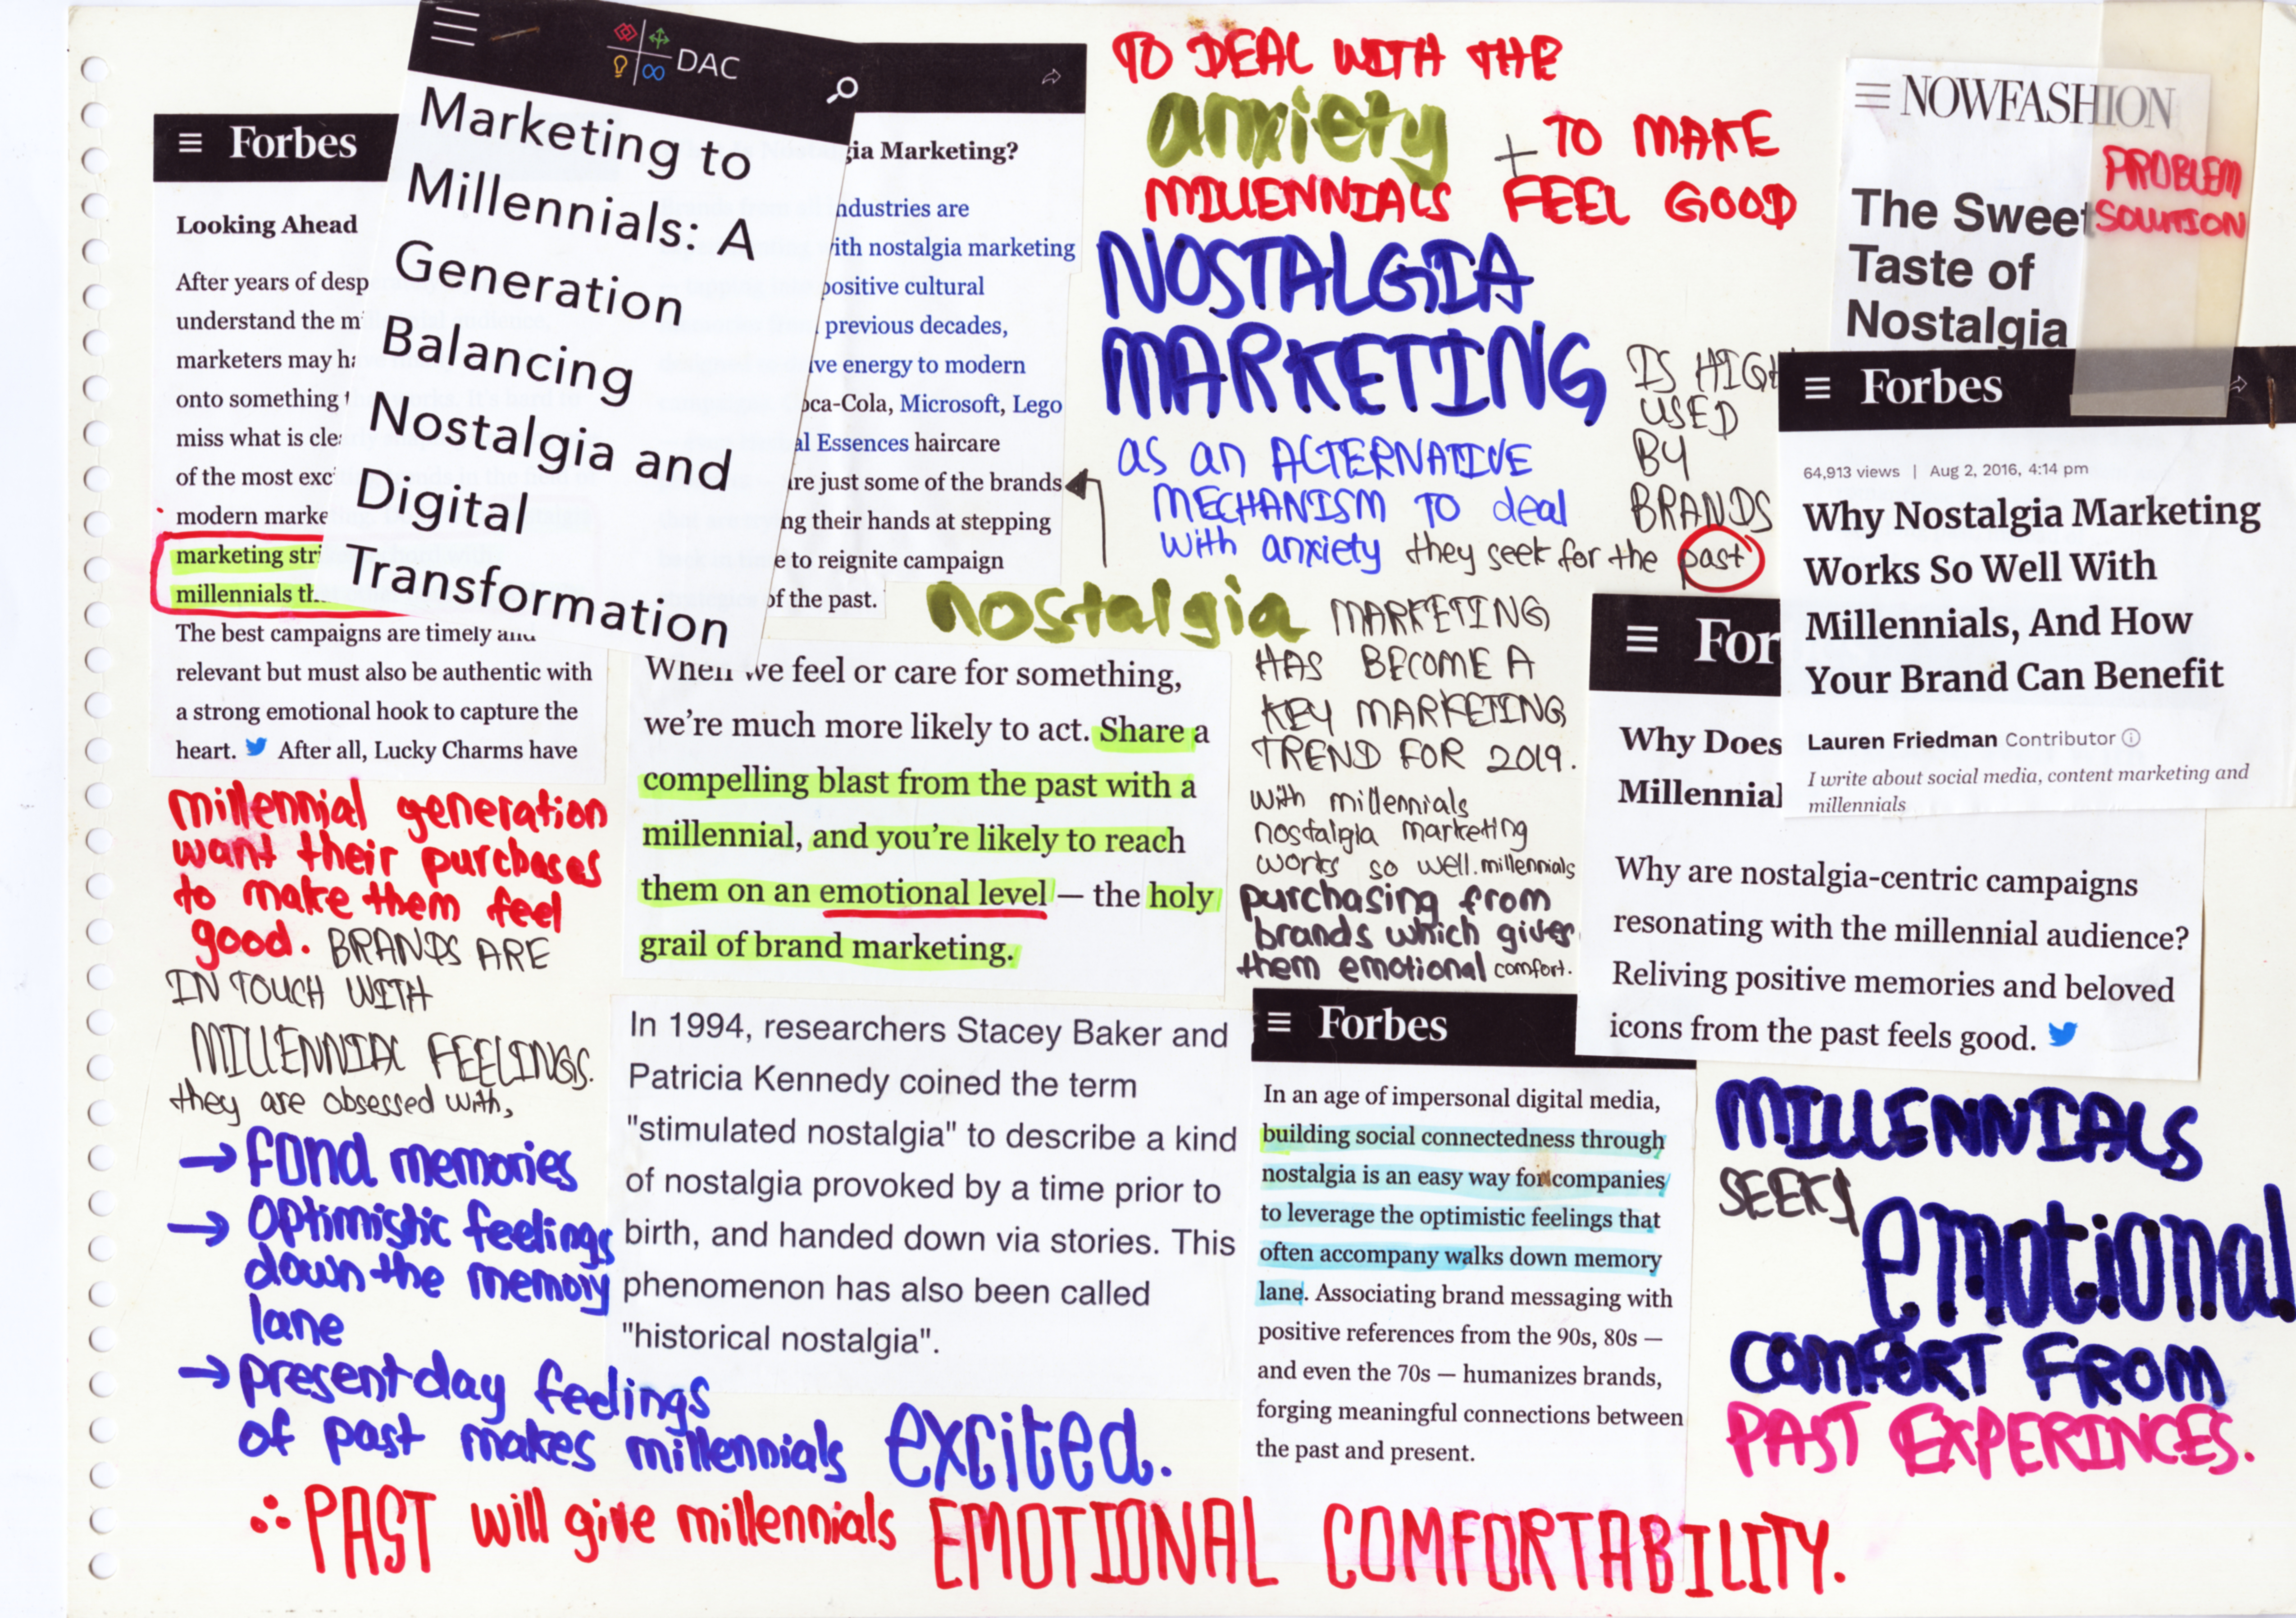 Forbes
Looking Ahead
After years of desp
understand the m
marketers may ha
onto something
miss what is cle
of the most exc
modern marke
marketing str
millennials th
The best campaigns are timely and
relevant but must also be authentic with
a strong emotional hook to capture the
heart. After all, Lucky Charms have
DAC
Marketing to
Millennials: A
Generation
Balancing
Nostalgia and
Digital
Transformation
gia Marketing?
ndustries are
ith nostalgia marketing
positive cultural
previous decades,
ive energy to modern
oca-Cola, Microsoft, Lego
al Essences haircare
re just some of the brands
ng their hands at stepping
e to reignite campaign
of the past.
TO DEAL WITH THE
anxiety
MILLENNIALS
+ TO MAKE
FEEL GOOD
NOSTALGIA
MARKETING
IS HIGH
USED
BY
BRANDS
as an ALTERNATIVE
MECHANISM TO deal
with anxiety they seek for the past
NOWFASHION
The Sweet
Taste of
Nostalgia
PROBLEM
SOLUTION
Forbes
64,913 views | Aug 2, 2016, 4:14 pm
Why Nostalgia Marketing
Works So Well With
Millennials, And How
Your Brand Can Benefit
Lauren Friedman Contributor
I write about social media, content marketing and
millennials
nostalgia MARKETING
HAS BECOME A
KEY MARKETING
TREND FOR 2019.
with millennials
nostalgia marketing
works so well. millennials
purchasing from
brands which gives
them emotional comfort.
When we feel or care for something,
we're much more likely to act. Share a
compelling blast from the past with a
millennial, and you're likely to reach
them on an emotional level — the holy
grail of brand marketing.
For
Why Does
Millennial
Why are nostalgia-centric campaigns
resonating with the millennial audience?
Reliving positive memories and beloved
icons from the past feels good.
millennial generation
want their purchases
to make them feel
good. BRANDS ARE
IN TOUCH WITH
MILLENNIAL FEELINGS.
they are obsessed with,
→ fond memories
→ Optimistic feelings
down the memory
lane
→ present day feelings
of past makes millennials excited.
In 1994, researchers Stacey Baker and
Patricia Kennedy coined the term
"stimulated nostalgia" to describe a kind
of nostalgia provoked by a time prior to
birth, and handed down via stories. This
phenomenon has also been called
"historical nostalgia".
Forbes
In an age of impersonal digital media,
building social connectedness through
nostalgia is an easy way for companies
to leverage the optimistic feelings that
often accompany walks down memory
lane. Associating brand messaging with
positive references from the 90s, 80s —
and even the 70s — humanizes brands,
forging meaningful connections between
the past and present.
MILLENNIALS
SEEKS
emotional
COMFORT FROM
PAST EXPERINCES.
∴ PAST will give millennials EMOTIONAL COMFORTABILITY.